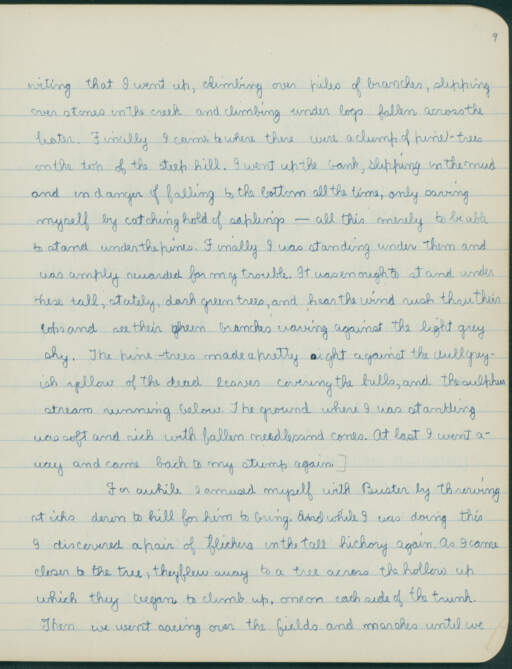 9
writing that I went up, climbing over piles of branches, slipping
over stones in the creek and climbing under logs fallen across the
water. Finally I came to where there were a clump of pine-trees
on the top of the steep hill. I went up the bank, slipping in the mud
and in danger of falling to the bottom all the time, only saving
myself by catching hold of saplings — all this merely to be able
to stand under the pines. Finally I was standing under them and
was amply rewarded for my trouble. It was enough to stand under
these tall, stately, dark green trees, and hear the wind rush thru their
tops and see their green branches waving against the light grey
sky. The pine-trees made a pretty sight against the dull grey-
ish yellow of the dead leaves covering the hills, and the sulphur
stream running below. The ground where I was standing
was soft and rich with fallen needles and cones. At last I went a-
way and came back to my stump again.]
For awhile I amused myself with Buster by throwing
sticks down to hill for him to bring. And while I was doing this
I discovered a pair of flickers in the tall hickory again. As I came
closer to the tree, they flew away to a tree across the hollow up
which they began to climb up, one on each side of the trunk.
Then we went racing over the fields and marshes until we